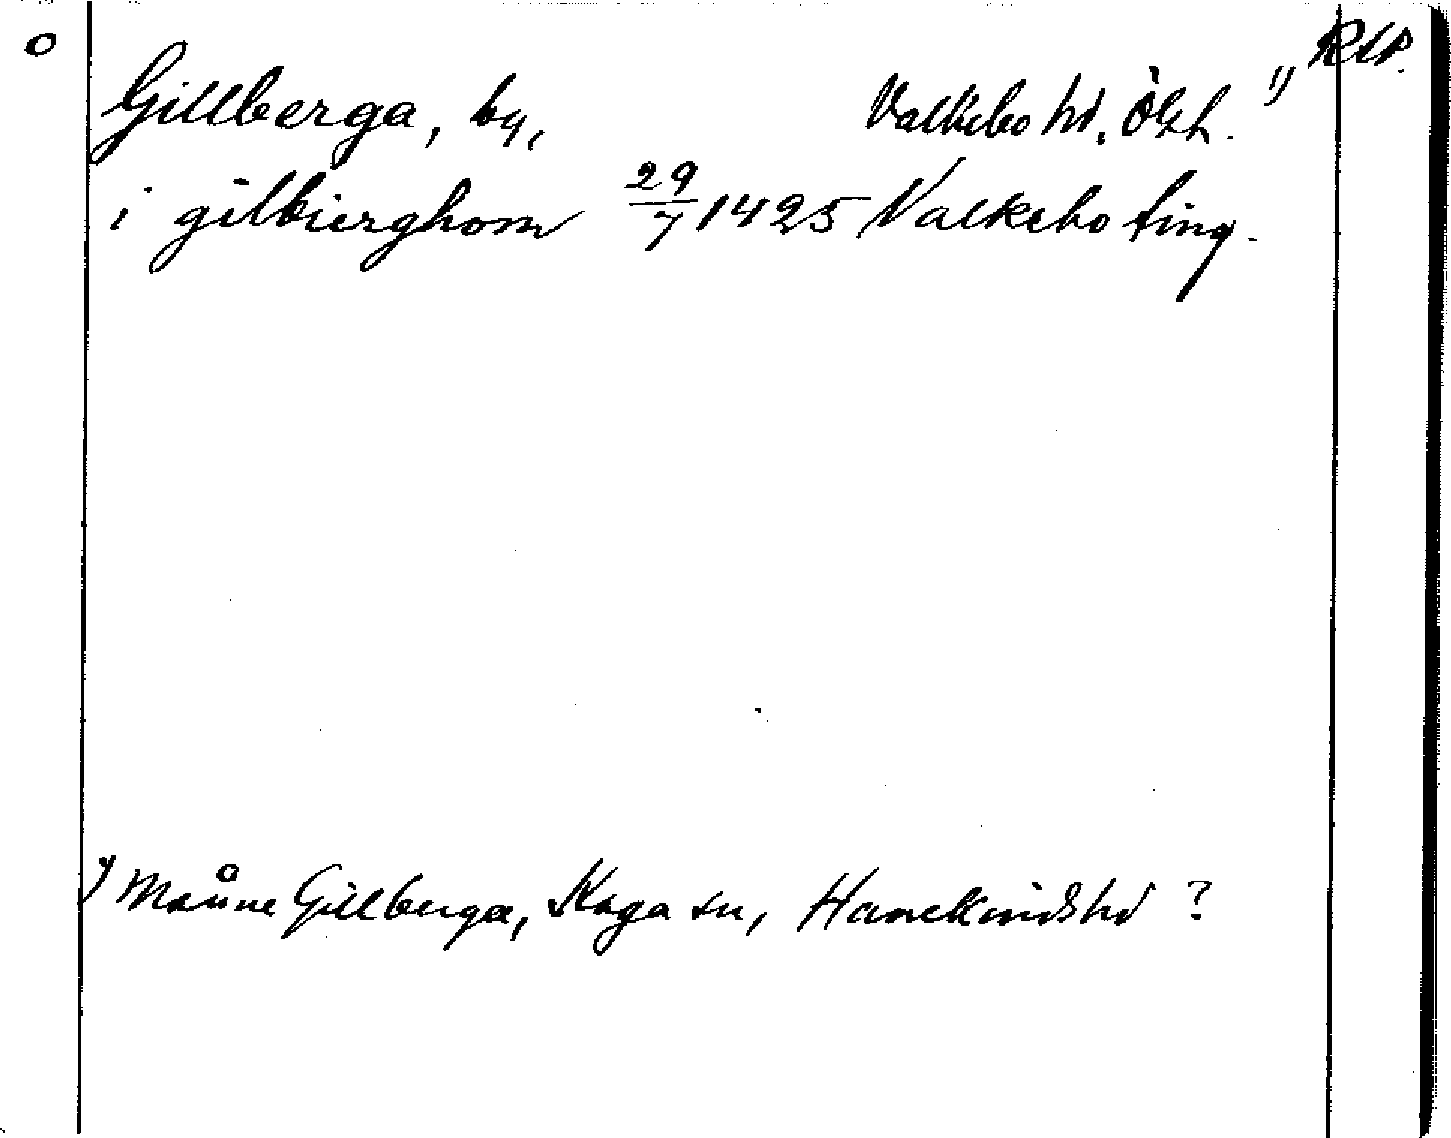 o
RAP.
Gillberga, by, Valkebo hd. Ögh. 1)
i gilbierghom 29/7 1425 Valkebo ting.
1) Månne Gillberga, Kaga sn, Hanekindshd ?